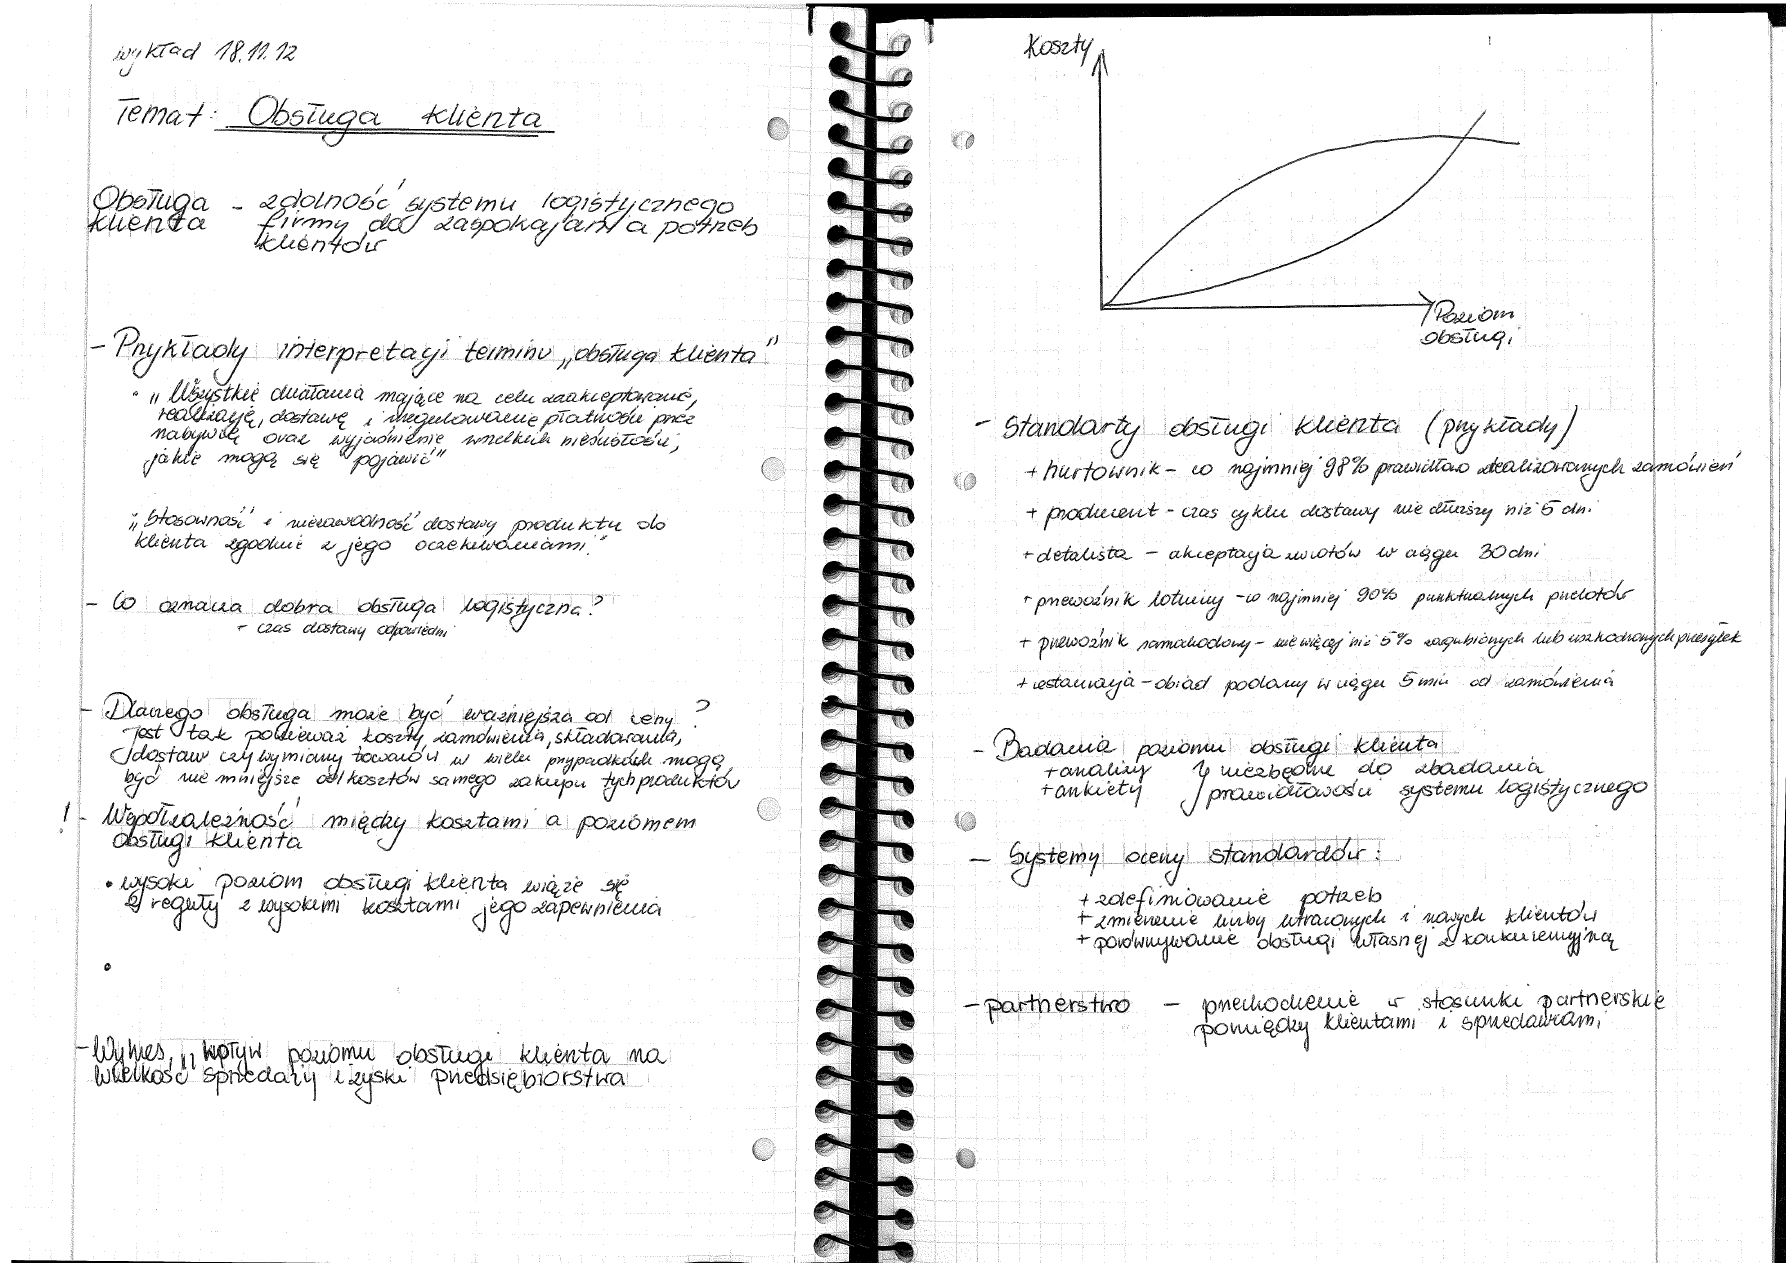 wykład 18.11.12
Temat: Obsługa klienta
Obsługa - zdolność systemu logistycznego
klienta firmy do zaspokajania potrzeb
klientów
- Przykłady interpretacji terminu „obsługa klienta"
• „Wszystkie działania mające na celu zaakceptowanie,
realizację, dostawę i uregulowanie płatności przez
nabywcę oraz wyjaśnienie wszelkich nieścisłości,
jakie mogą się pojawić"
„Stosowność i niezawodność dostawy produktu do
klienta zgodnie z jego oczekiwaniami."
- Co oznacza dobra obsługa logistyczna?
- czas dostawy odpowiedni
- Dlaczego obsługa może być ważniejsza od ceny?
Jest tak ponieważ koszty zamówienia, składowania,
dostaw czy wymiany towarów w wielu przypadkach mogą
być nie mniejsze od kosztów samego zakupu tych produktów
! - Współzależność między kosztami a poziomem
obsługi klienta
• wysoki poziom obsługi klienta wiąże się
z reguły z wysokimi kosztami jego zapewnienia
•
- Wykres „wpływ poziomu obsługi klienta na
wielkość sprzedaży i zyski przedsiębiorstwa
Koszty
Poziom
obsługi
- Standarty obsługi klienta (przykłady)
+ hurtownik - co najmniej 98% prawidłowo zrealizowanych zamówień
+ producent - czas cyklu dostawy nie dłuższy niż 5 dni
+ detalista - akceptacja zwrotów w ciągu 30 dni
+ przewoźnik lotniczy - co najmniej 90% punktualnych przelotów
+ przewoźnik samochodowy - nie więcej niż 5% zagubionych lub uszkodzonych przesyłek
+ restauracja - obiad podany w ciągu 5 min od zamówienia
- Badania poziomu obsługi klienta
+ analizy } niezbędne do zbadania
+ ankiety prawidłowości systemu logistycznego
- Systemy oceny standardów:
+ zdefiniowanie potrzeb
+ zmierzenie liczby utraconych i nowych klientów
+ porównywanie obsługi własnej z konkurencyjną
- partnerstwo - przechodzenie w stosunki partnerskie
pomiędzy klientami i sprzedawcami